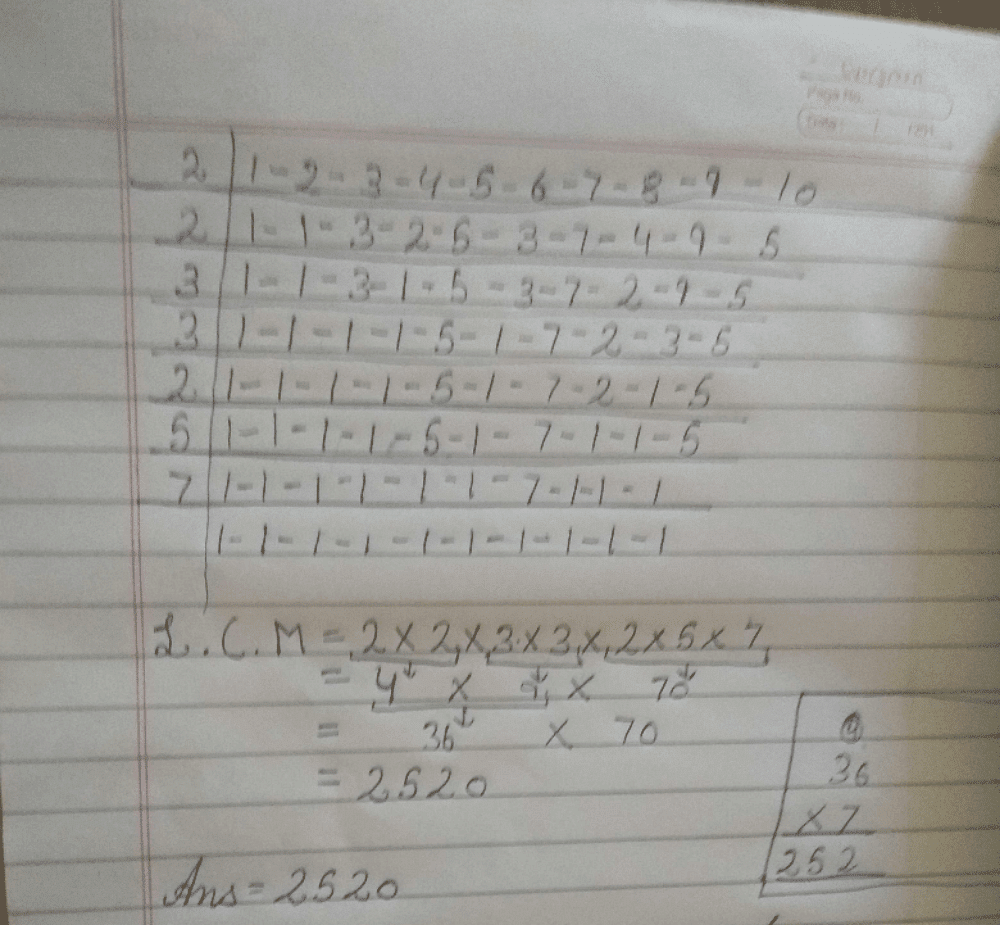 Page No.
Date
2 | 1 - 2 - 3 - 4 - 5 - 6 - 7 - 8 - 9 - 10
2 | 1 - 1 - 3 - 2 - 5 - 3 - 7 - 4 - 9 - 5
3 | 1 - 1 - 3 - 1 - 5 - 3 - 7 - 2 - 9 - 5
3 | 1 - 1 - 1 - 1 - 5 - 1 - 7 - 2 - 3 - 5
2 | 1 - 1 - 1 - 1 - 5 - 1 - 7 - 2 - 1 - 5
5 | 1 - 1 - 1 - 1 - 5 - 1 - 7 - 1 - 1 - 5
7 | 1 - 1 - 1 - 1 - 1 - 1 - 7 - 1 - 1 - 1
1 - 1 - 1 - 1 - 1 - 1 - 1 - 1 - 1 - 1
L.C.M = 2 × 2 × 3 × 3 × 2 × 5 × 7
= 4 × 9 × 70
= 36 × 70
= 2520
Ans = 2520
36
× 7
252